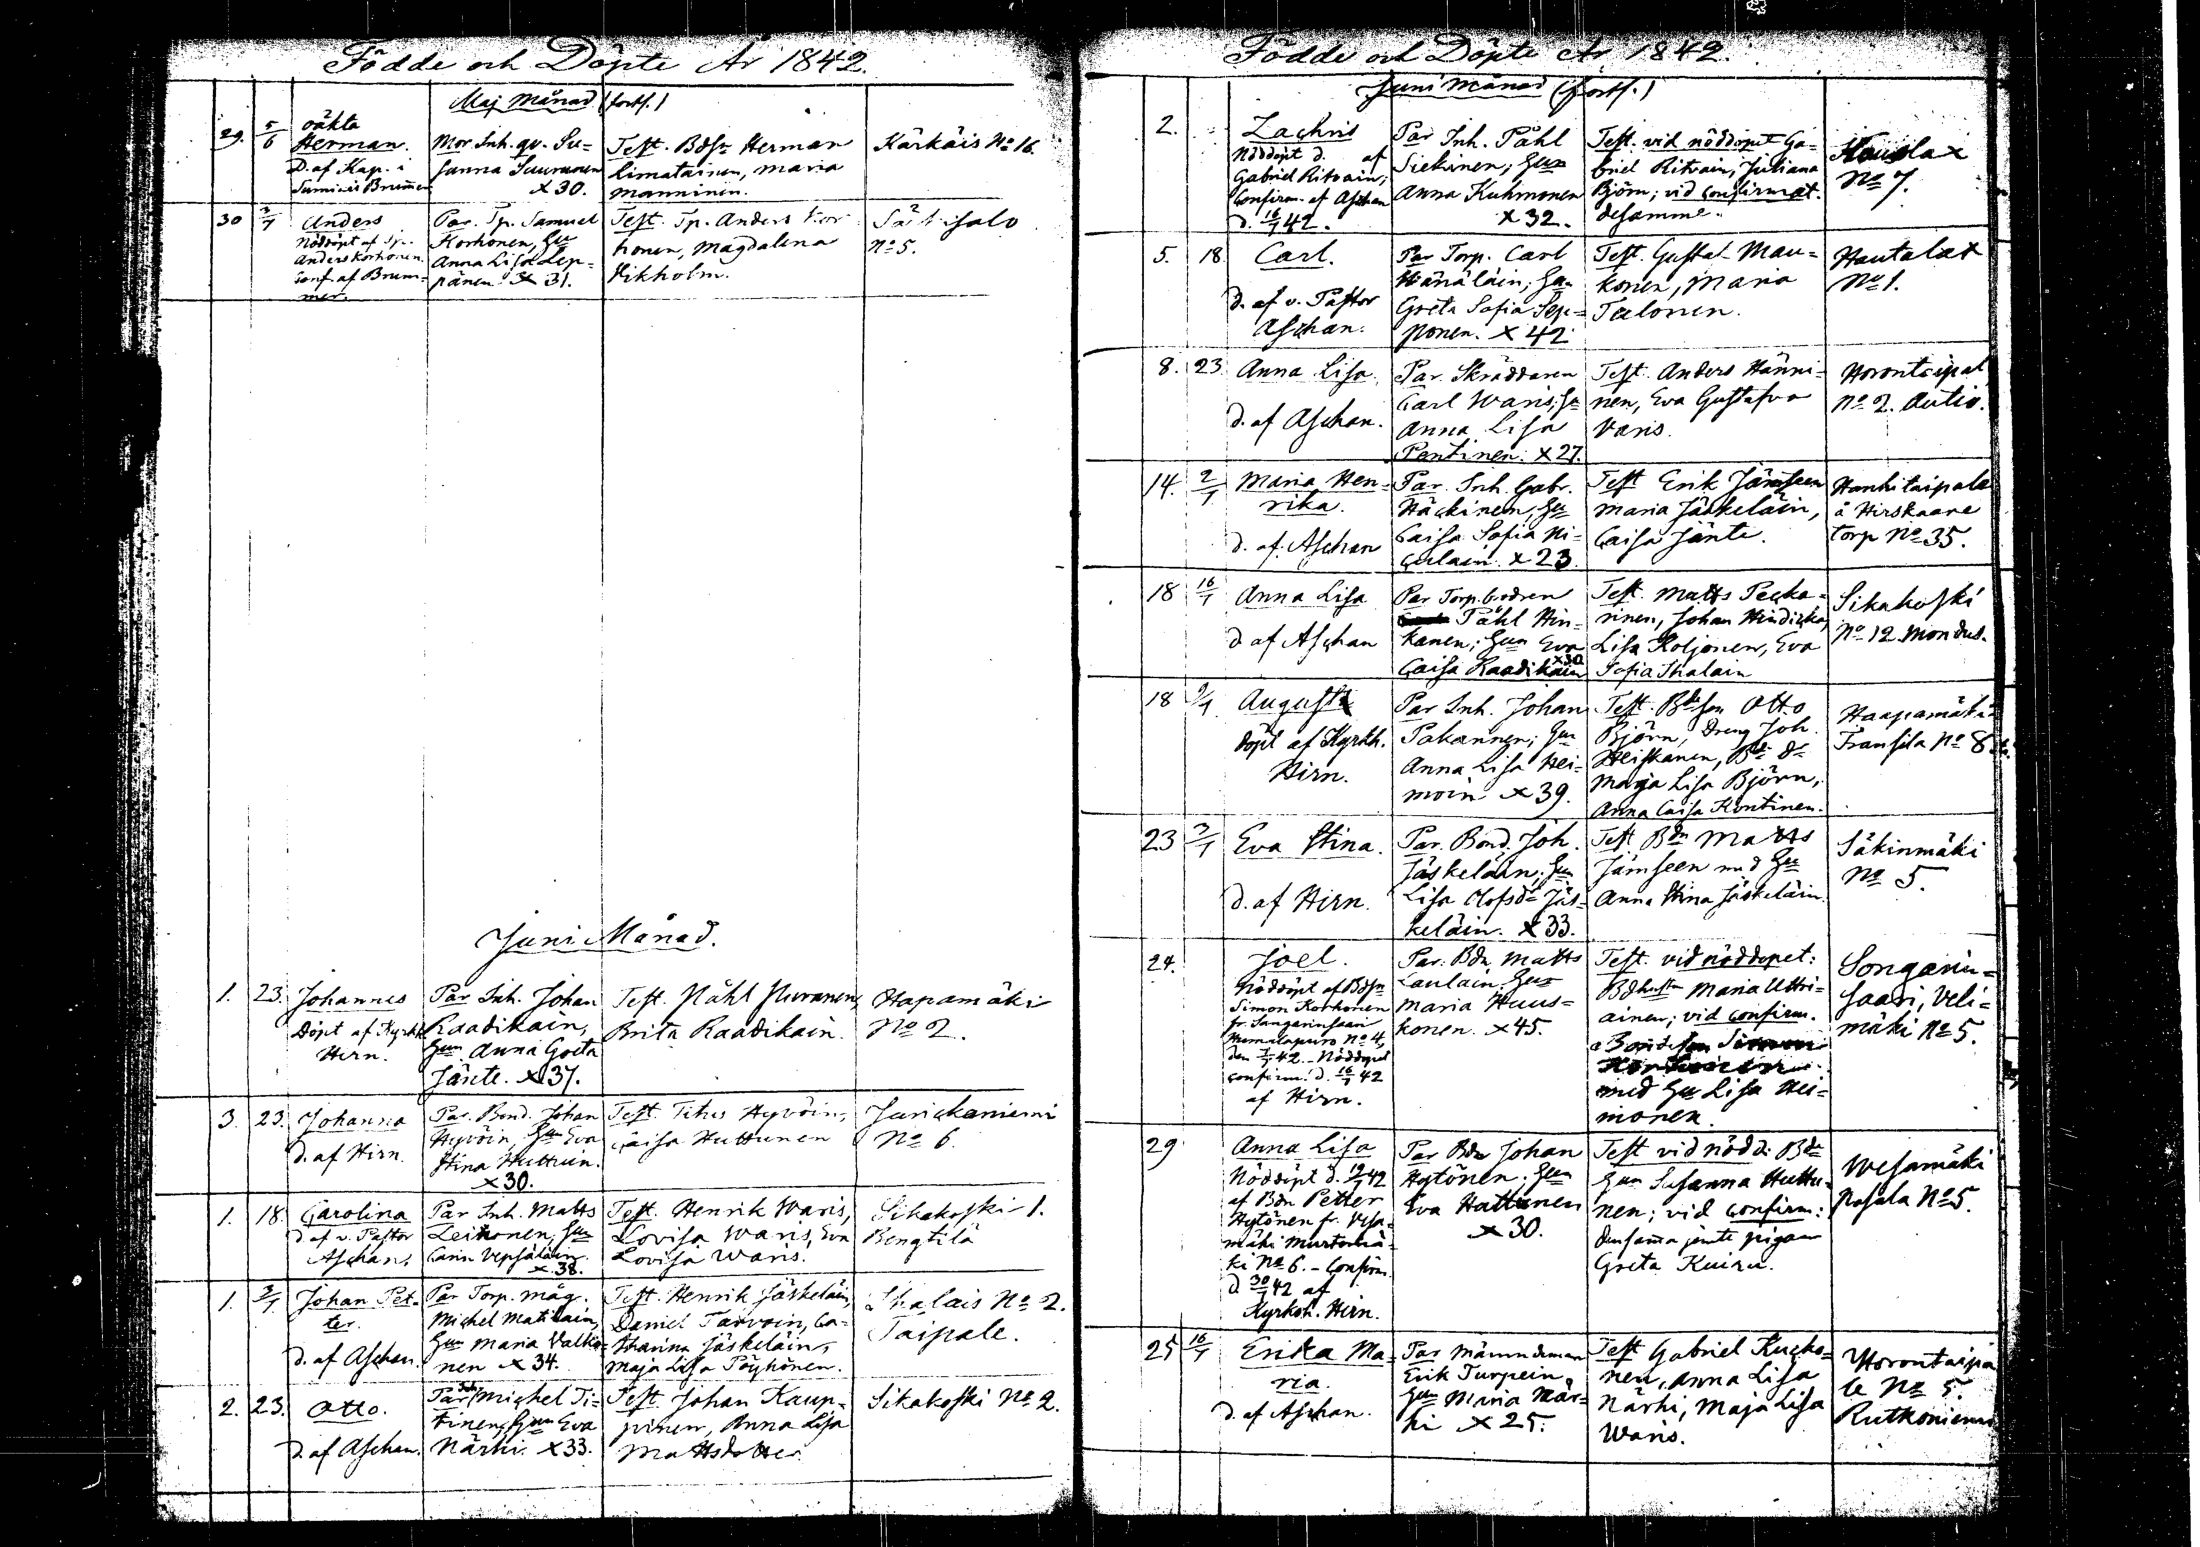 Födde och Döpte År 1842.
Maj Månad (forts.)
29. 5/6 oäkta
Herman.
D. af Kap. i
Mor Inh. qv. Su=
sanna Suuronen
x 30.
Test. Bdsn Herman
Limatainen, Maria
Manninen.
Kärkäis No 16.
30 3/7 Anders
Nöddöpt af Tp.
Anders Korhonen.
conf. af Brum=
mer.
Par. Tp. Samuel
Korhonen, Hu
Anna Lisa Lep=
pänen x 31.
Test. Tp. Anders Kor
honen, Magdalena
Hikholm.
No 5.
Juni Månad.
1. 23. Johannes
Döpt af Kyrkh.
Hirn.
Par Inh. Johan
Raadikain,
Hun Anna Greta
Jänte. x 37.
Test. Påhl Puranen,
Brita Raadikain.
Hapamäki
No 2.
3. 23. Johanna
d. af Hirn.
Par. Bond. Johan
Hyvöin, Hu Eva
Stina Huttuin.
x 30.
Test. Titus Hyvöin,
Caisa Huttunen
Junickaniemi
No 6.
1. 18. Carolina
d. af v. Pastor
Aschan.
Par Inh. Matts
Leikonen, Hun
Carin Vepsäläin.
x 38.
Test. Henrik Waris,
Lovisa Waris, Eva
Lovisa Waris.
Sikakoski 1.
Bengtilä
1. 3/7 Johan Pet=
ter.
d. af Aschan.
Par Torp. måg.
Michel Matilain,
Hun Maria Valko=
nen x 34.
Test. Henrik Jäskeläin,
Daniel Tarvain, Ca=
tharina Jäskeläin,
Maja Lisa Pöyhönen.
Ihalais No 2.
Taipale.
2. 23. Otto.
d. af Aschan.
Par Inh. Michel Ti=
tinen, Hun Eva
Närhi. x 33.
Test. Johan Kaup=
pinen, Anna Lisa
Mattsdotter
Sikakoski No 2.
Födde och Döpte År 1842.
Juni Månad (forts.)
2. Zachris
Nöddöpt d. af
Gabriel Ritvain,
Confirm. af Aschan
d. 16/7 42.
Par Inh. Påhl
Siekinen; Hun
Anna Kuhmonen
x 32.
Test. vid nöddopet Ga=
briel Ritvain, Juliana
Björn; vid confirmat.
desamme.
No 7.
5. 18 Carl.
d. af v. Pastor
Aschan.
Par Torp. Carl
Hänäläin; Hun
Greta Sofia Sep=
ponen. x 42
Test. Gustaf Mau=
konen, Maria
Talonen.
Hautalax
No 1.
8. 23 Anna Lisa
d. af Aschan.
Par. Skräddaren
Carl Waris, Hu
Anna Lisa
Pentinen. x 27.
Test. Anders Hänni=
nen, Eva Gustafva
Varis.
Horontaipal
No 2. Autio.
14. 2/7 Maria Hen=
rika.
d. af. Aschan
Par. Inh. Gabr.
Häckinen, Hu
Caisa Sofia Ni=
culain x 23
Test Erik Jämseen
Maria Jäskeläin,
Caisa Jänte.
Hankitaipale
å Hirskaare
torp No 35.
18 16/7 Anna Lisa
d af Aschan
Par Torp. brodren
Påhl Hin=
kanen; Hun Eva
Caisa Raadikain x 30
Test. Matts Pecka=
rinen, Johan Hindicka,
Lisa Koljonen, Eva
Sofia Ihalain
Sikakoski
No 12. Mondus.
18 9/7 August
döpt af Kyrkh.
Hirn.
Par Inh. Johan
Pakarinen; Hun
Anna Lisa Hei=
moin x 39.
Test. Bdeson Otto
Björn, Dreng Joh.
Heiskanen, Bde dr
Maja Lisa Björn,
Anna Caisa Kontinen.
Haapamäki
Fransila No 8
23 3/7 Eva Stina.
d. af Hirn.
Par. Bond. Joh.
Jäskeläin; Hun
Lisa Olofsdr Jäs=
keläin. x 33.
Test Bdn Matts
Jämseen med Hu
Anna Stina Jäskeläin.
Säkinmäki
No 5.
24. Joel.
Nöddöpt af Bdsn
Simon Korhonen
den 7/7 42 - Nöddopet
confirm. d. 16/7 42
af Hirn.
Par. Bdn Matts
Laulain; Hun
Maria Huus=
konen. x 45.
Test. vid nöddopet:
Bdhustr Maria Uttri=
ainen; vid confirm.
med Hu Lisa Hei=
monen.
Songarin=
saari, Veli=
mäki No 5.
29 Anna Lisa
Nöddöpt d. 19/7 42
af Bdn Petter
Hytönen fr. Vesa=
mäki Murtomä=
ki No 6. - Confirm.
d 30/7 42 af
Kyrkoh. Hirn.
Par Bdn Johan
Hytönen; Hun
Eva Hattunen
x 30.
Test vid nödd: Bde
Hun Susanna Huttu=
nen; vid confirm:
densamma jemte pigan
Greta Kuiru.
Wesamäki
Pasala No 5.
25 16/7 Erika Ma=
ria.
d. af Aschan.
Par
Erik Turpein
Hun Maria När=
hi x 25.
Test Gabriel Kucko=
nen, Anna Lisa
Närhi, Maja Lisa
Waris.
Horontaipa
le No 5.
Rutkoniemi